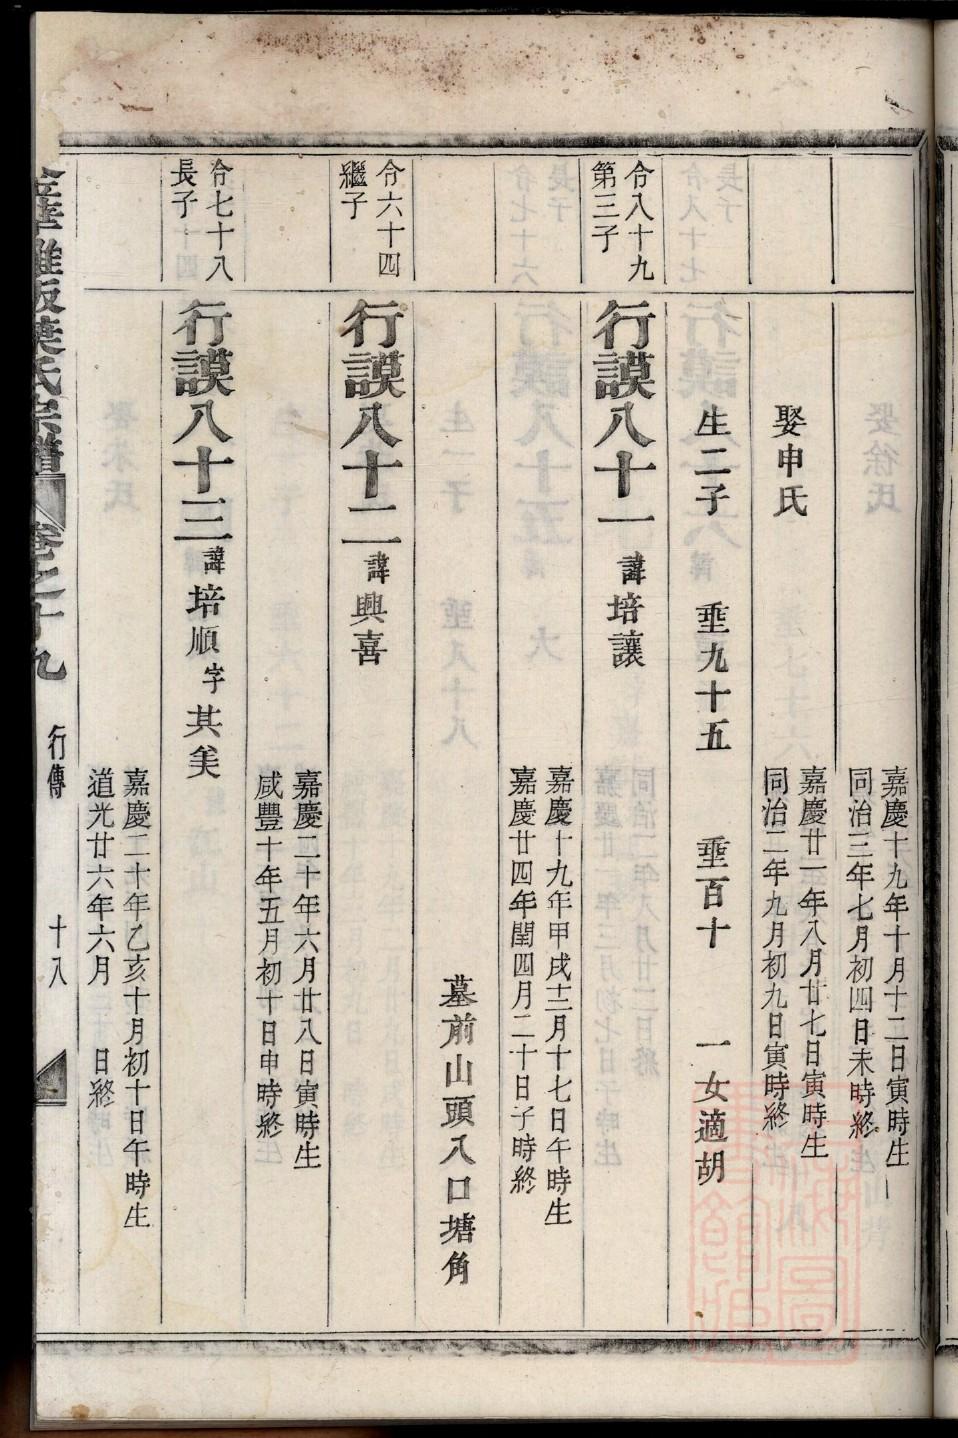 嘉慶十九年十月十二日寅時生
同治三年七月初四日未時終
娶申氏
嘉慶廿一年八月廿七日寅時生
同治二年九月初九日寅時終
生二子 垂九十五 垂百十 一女適胡
令八十九
第三子
行謨八十一 諱培讓
嘉慶十九年甲戌十二月十七日午時生
嘉慶廿四年閏四月二十日子時終
墓前山頭入口塘角
令六十四
繼子
行謨八十二 諱興喜
嘉慶二十年六月廿八日寅時生
咸豐十年五月初十日申時終
令七十八
長子
行謨八十三 諱培順 字其美
嘉慶二十年乙亥十月初十日午時生
道光廿六年六月 日終
葉氏宗譜 卷之十九 行傳 十八